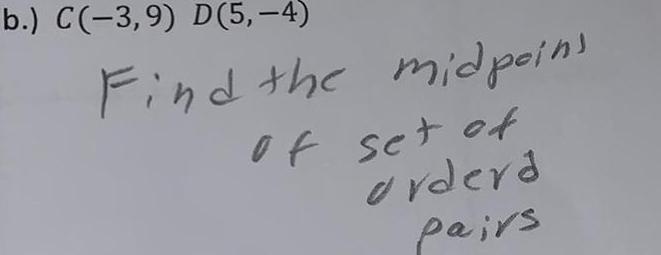 b.) C(−3,9) D(5,−4)
Find the midpoint
of set of
orderd
pairs